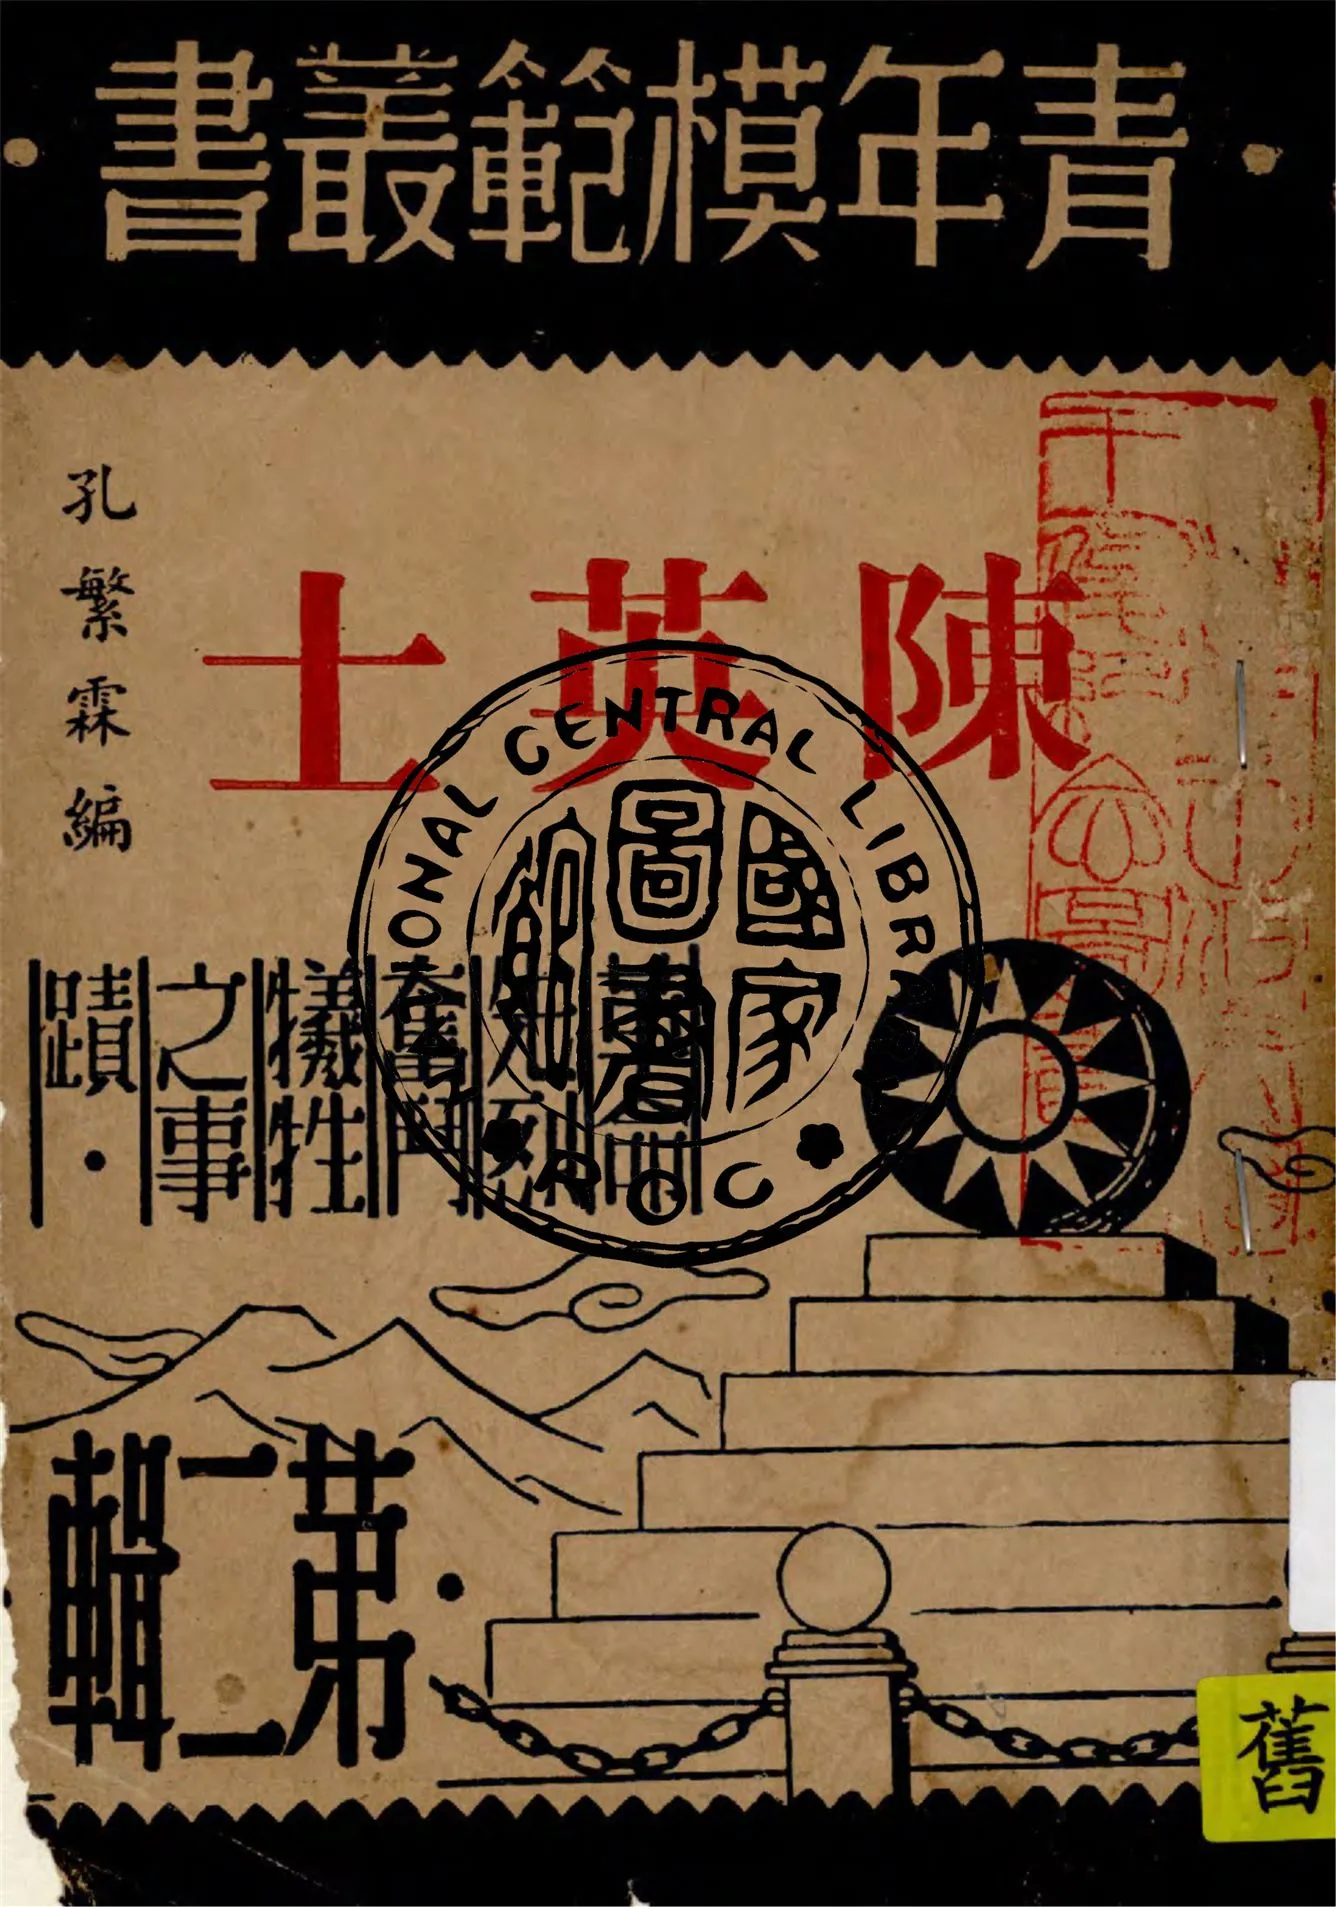 ·青年模範叢書·
陳英士
孔繁霖編
革命先烈奮鬥犧牲之事蹟·
·第二輯
NATIONAL CENTRAL LIBRARY
國家圖書館
R O C
舊